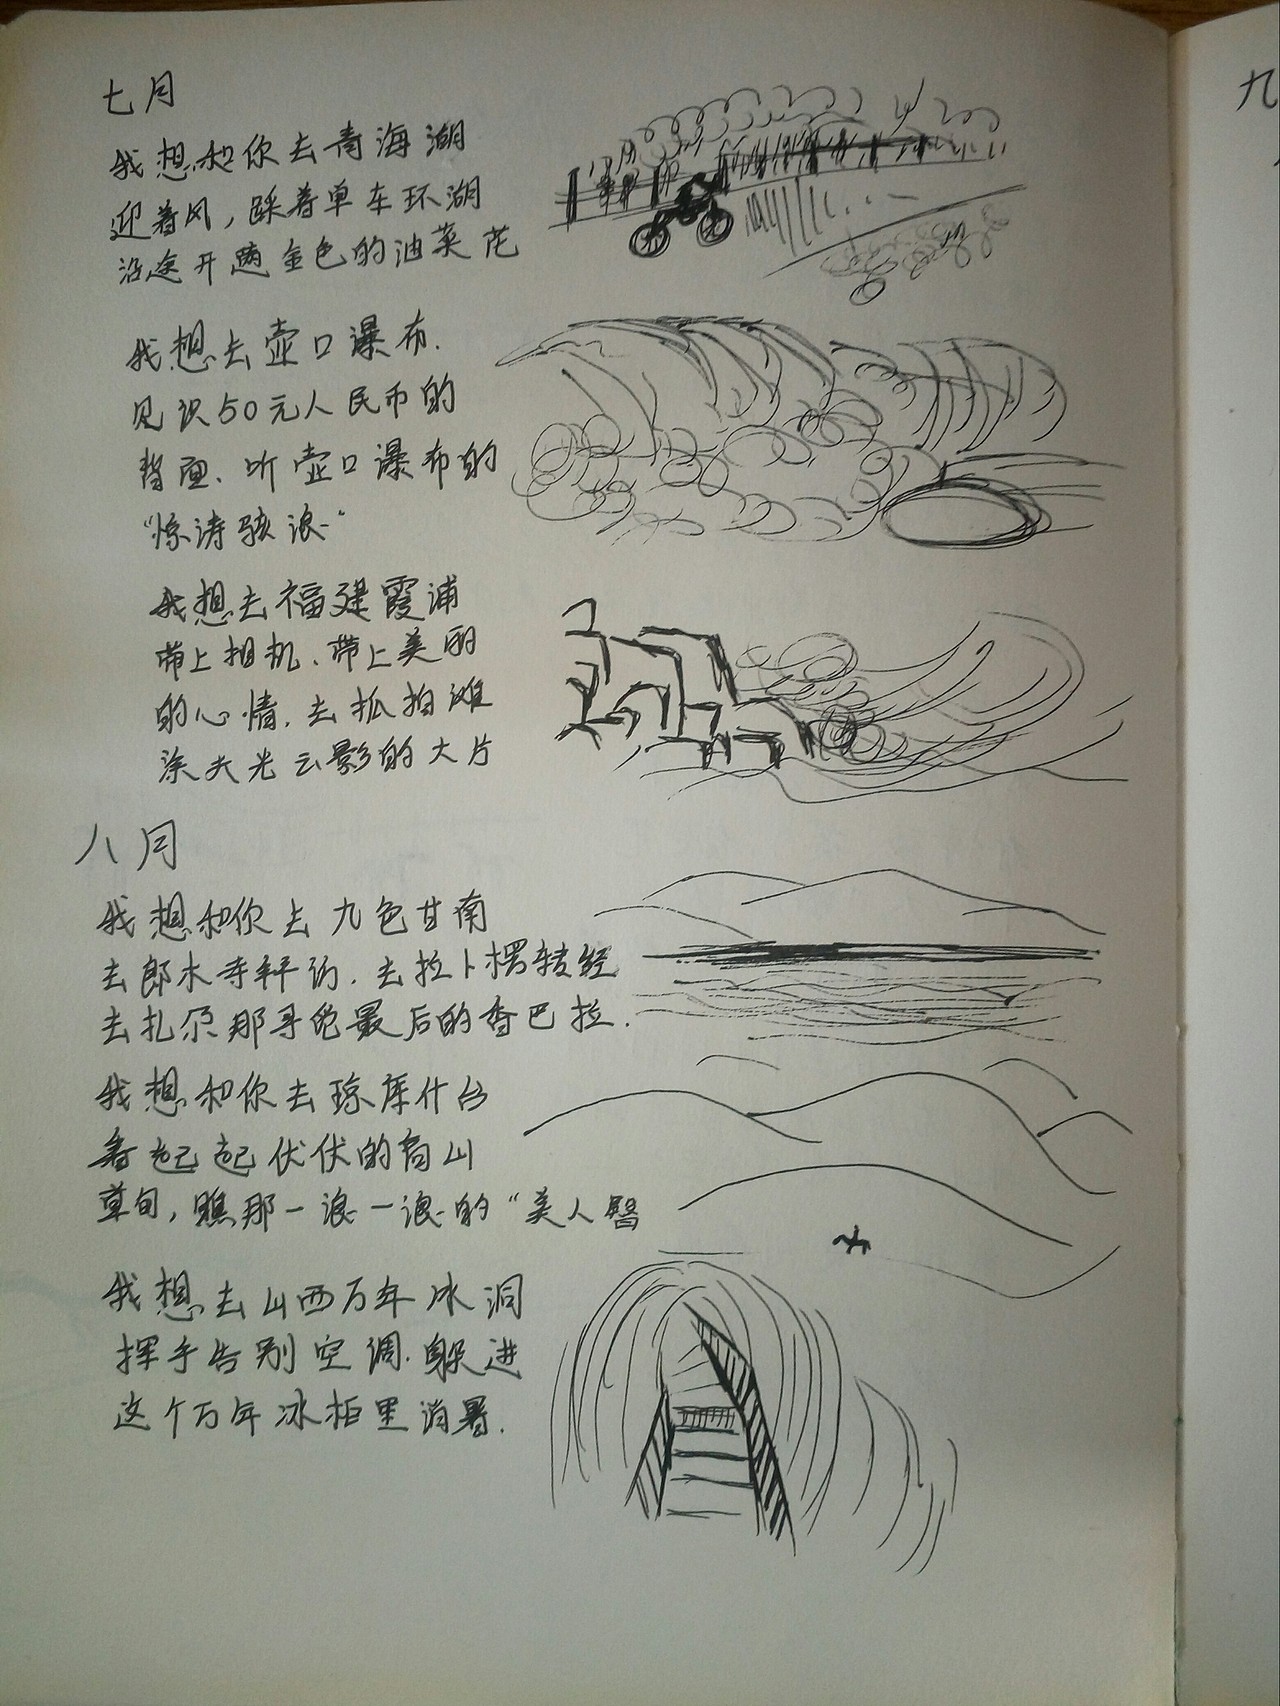 七月
我想和你去青海湖
迎着风，踩着单车环湖
沿途开遍金色的油菜花
我想去壶口瀑布.
见识50元人民币的
背面.听壶口瀑布的
“惊涛骇浪”
我想去福建霞浦
带上相机、带上美丽
的心情.去抓拍滩
涂天光云影的大片
八月
我想和你去九色甘南
去郎木寺.去拉卜楞转经
去扎尕那寻觅最后的香巴拉.
我想和你去琼库什台
看起起伏伏的高山
草甸，瞧那一浪一浪的“美人臀
我想去山西万年冰洞
挥手告别空调.躲进
这个万年冰柜里消暑.
九